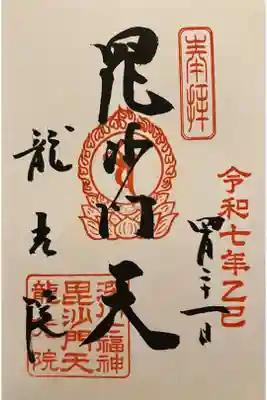 奉拝
令和七年乙巳
四月二十一日
毘沙門天
龍光院
深川七福神
毘沙門天
龍光院